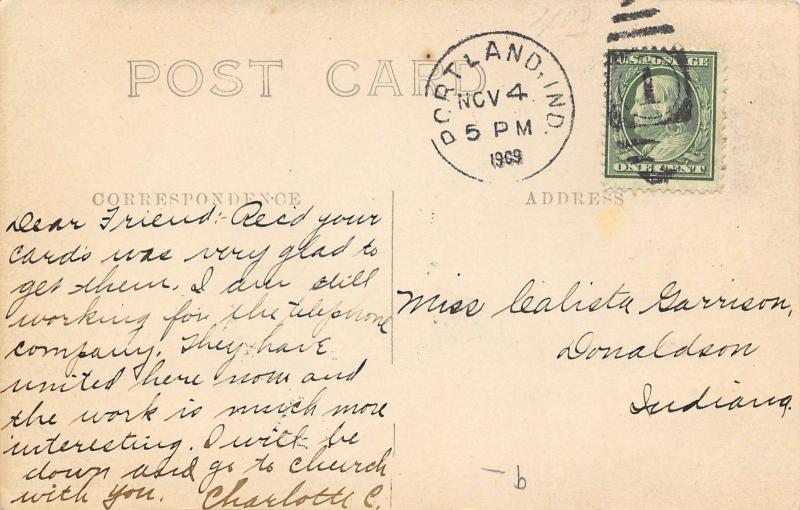 POST CARD
PORTLAND, IND.
NOV 4
5 PM
1909
U.S. POSTAGE
1
ONE CENT
CORRESPONDENCE
ADDRESS
Dear Friend:- Rec'd your
cards was very glad to
get them. I am still
working for the telephone
company. They have
united here now and
the work is much more
interesting. I will be
down and go to church
with you. Charlotte C.
Miss Calista Garrison,
Donaldson
Indiana.